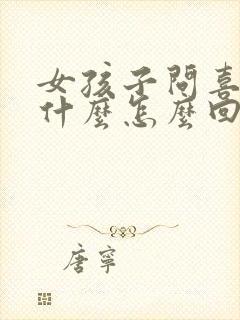 女孩子問喜
什麼怎麼回
唐寧